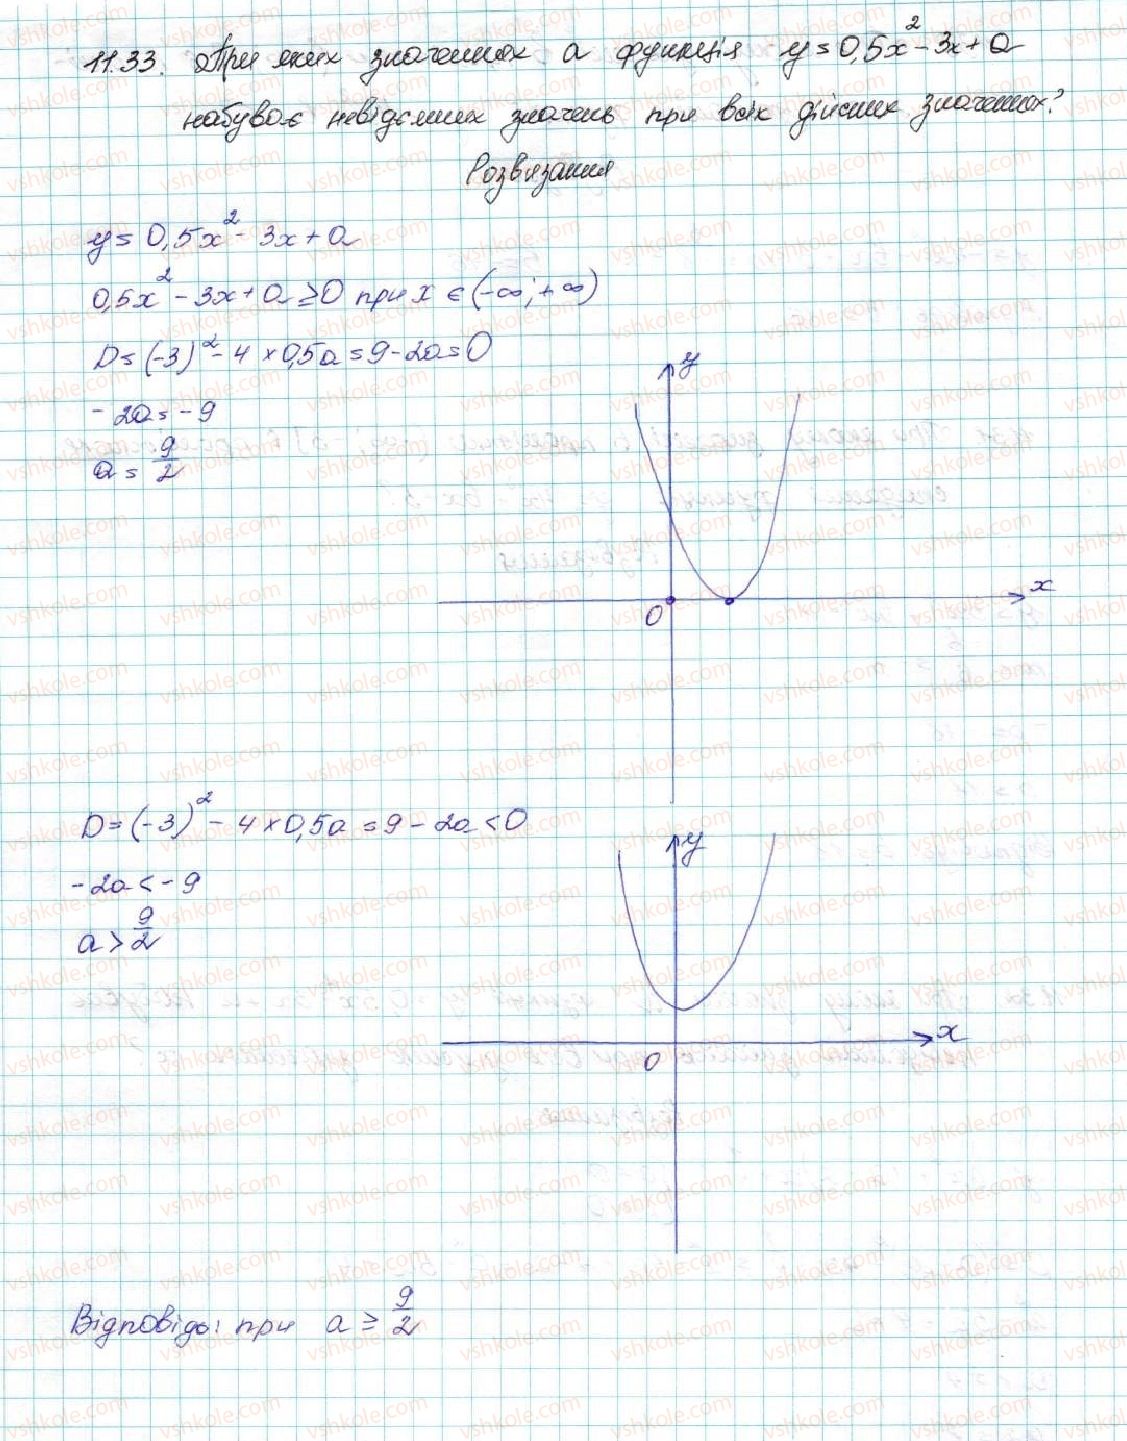 11.33. При яких значеннях a функція y = 0,5x² - 3x + a
набуває невід'ємних значень при всіх дійсних значеннях?
Розв'язання
y = 0,5x² - 3x + a
0,5x² - 3x + a ≥ 0 при x ∈ (-∞; +∞)
D = (-3)² - 4 × 0,5a = 9 - 2a = 0
- 2a = - 9
a = 9/2
y
x
0
D = (-3)² - 4 × 0,5a = 9 - 2a < 0
- 2a < - 9
a > 9/2
y
x
0
Відповідь: при a ≥ 9/2
vshkole.com